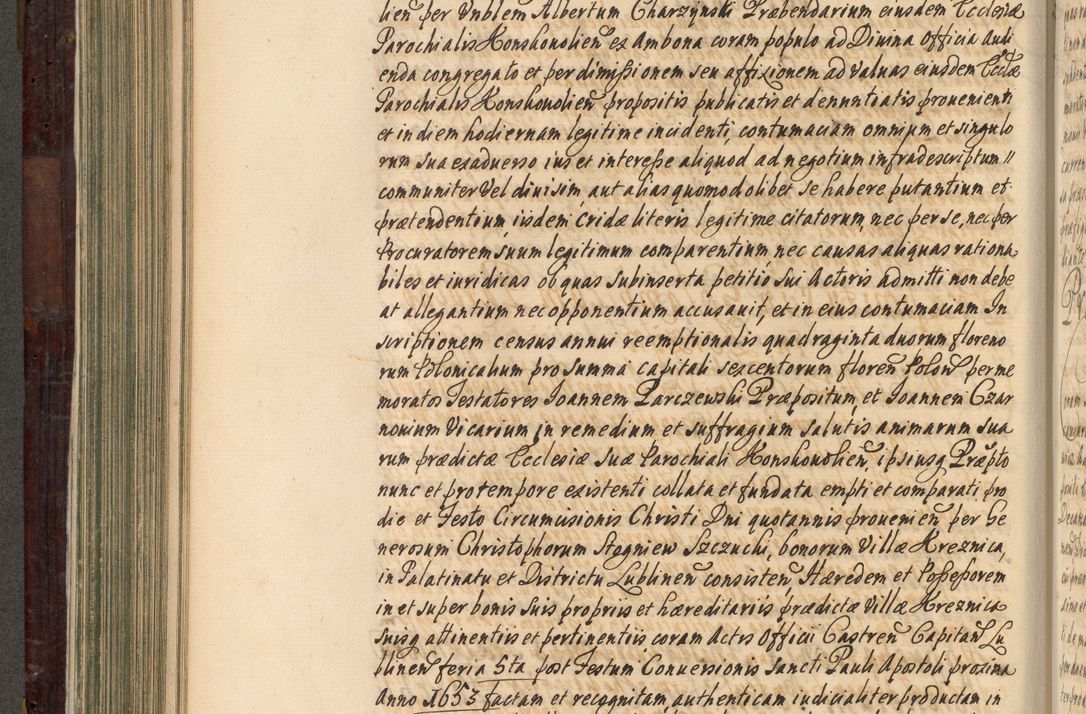 lien̄ per Vnblem Albertum Charzynski Præbendarium eiusdem Ecclesiæ
Parochialis Konskouolien̄ ex Ambona coram populo ad Diuina Officia audi
enda congregato et per dimißionem seu affixionem ad Valuas eiusdem Eccłæ
Parochialis Konskouolien̄ propositis publicatis et denuntiatis prouenienti
et in diem hodiernam legitime incidenti, contumaciam omnium et singulo
rum sua exaduerso ius et intereße aliquod ad negotium infradescriptum //
communiter Vel diuisim, aut alias quomodolibet se habere putantium et
prætendentium, iisdem Cridæ literis legitime citatorum, nec per se, nec per
Procuratorem suum legitimum comparentium nec causas aliquas rationa
biles et iuridicas ob quas subinserta petitio sui Actoris admitti non debe
at allegantium nec opponentium accusauit, et in eius contumaciam In
scriptionem census annui reemptionalis quadraginta duorum floreno
rum Polonicalium pro summa capitali sexcentorum floren̄ Polon̄ per me
moratos Testatores Ioannem Parczewski Præpositum, et Ioannem Czar
nouium Vicarium in remedium et suffragium salutis animarum sua
rum prædictæ Ecclesiæ suæ Parochiali Konskouolien̄, ipsiusq Præpto
nunc et pro tempore existenti collata et fundata empti et comparati pro
die et Festo Circumcisionis Christi Dni quotannis prouenien̄ per Ge
nerosum Christophorum Stogniew Szczucki, bonorum Villæ Kreznica,
in Palatinatu et Districtu Lublinen̄ consisten̄ Hæredem et Poßeßorem
in et super bonis suis proprijs et hæreditarijs prædictæ Villæ Kreznica
suisq attinentiis et pertinentiis coram Actis Officii Castren̄ Capitan̄ Lu
blinen̄ feria 5ta post Festum Conuersionis Sancti Pauli Apostoli proxima
Anno 1653 factam et recognitam authenticam iudicialiter productam in